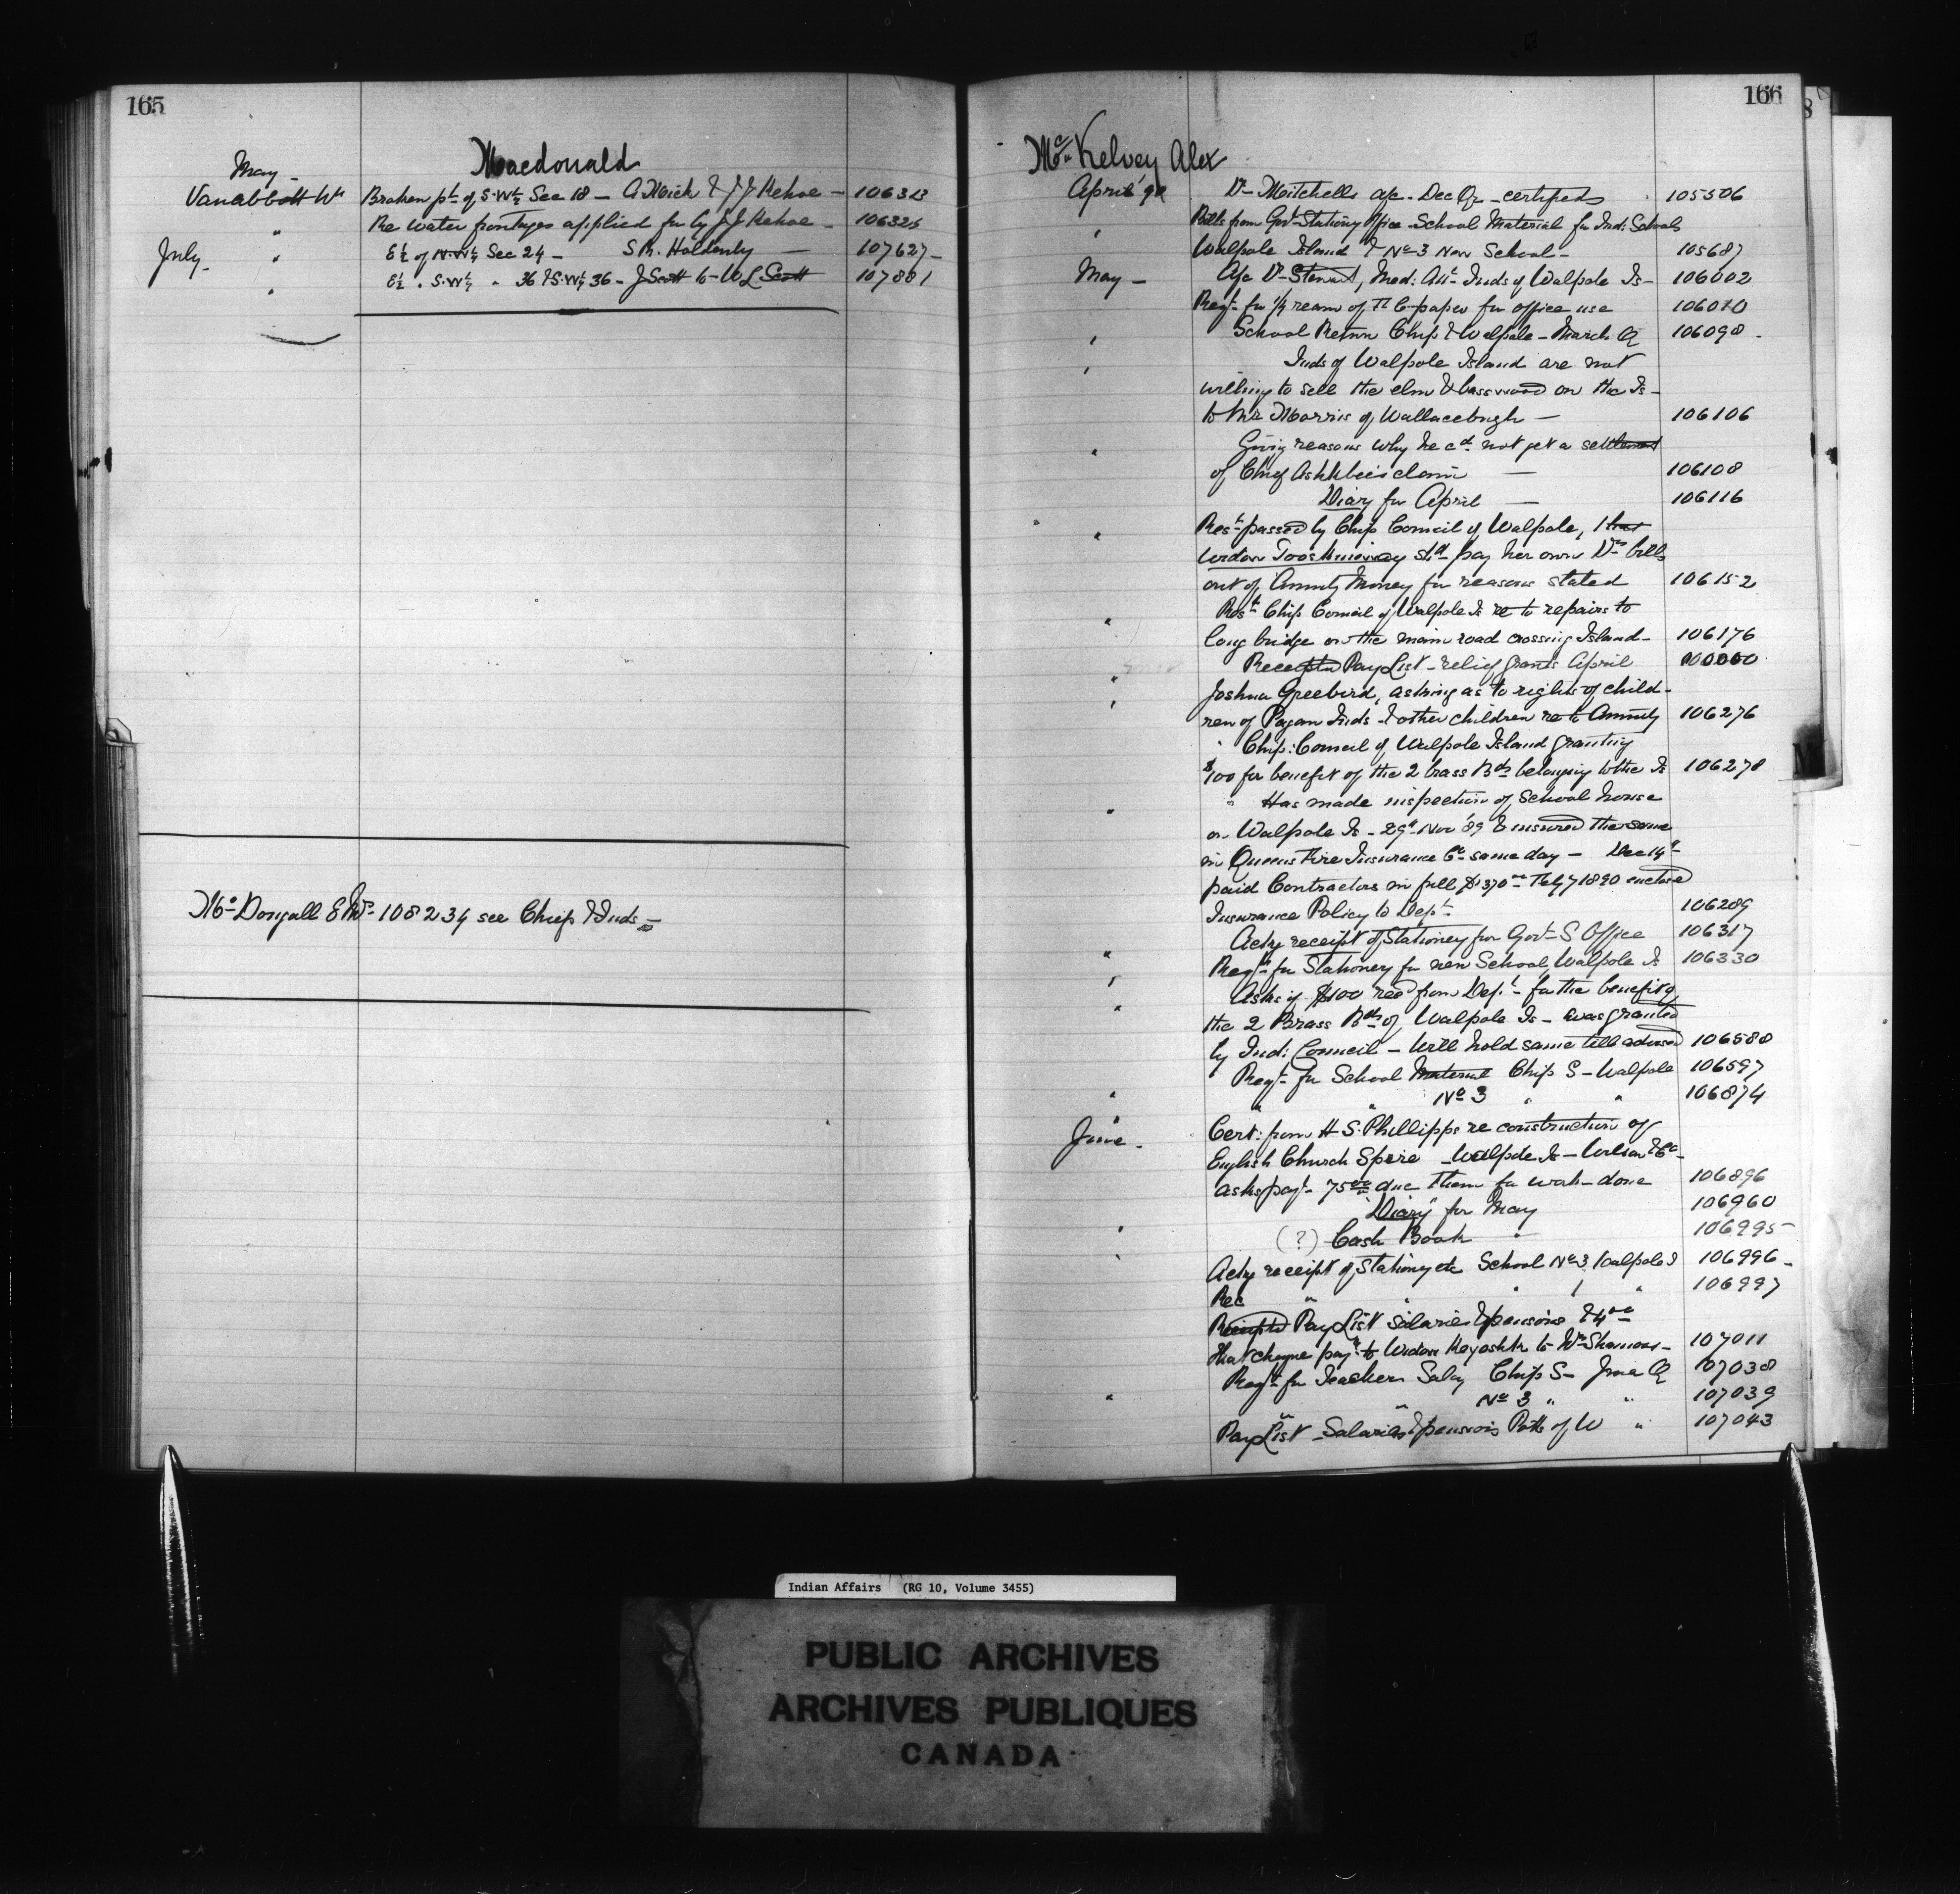 165
Macdonald
May -
Vanabbott Wm Broken pt of S.W¼ Sec 18 - A. Meick & J J Kehoe - 106313
" Re Water frontages applied for by J J Kehoe - 106325
July - " E½ of N.W¼ Sec 24 - S M. Holdenly - 107627 -
" E½ " S.W¼ " 36 & S.W¼ 36 - J Scott to W L Scott 107881
McDougall 108234 see Chief & Inds -
166
McKelvey Alex
April '90 Dr Mitchells a/c - Dec Qr - certified 105506
" Bills from Govt Stationy Office - School Material for Ind: Schools
Walpole Island & No 3 New School - 105687
May - A/c Dr Stewart, Med: Att Inds of Walpole Is - 106002
Reqn for ½ ream of paper for office use 106070
" School Return Chip & Walpole - March Q 106098 -
" Inds of Walpole Island are not
willing to sell the elm & basswood on the Is -
to Mr Morris of Wallaceburgh - 106106
" Giving reasons why he cd not get a settlement
of Chief Ashkbee's claim - 106108
Diary for April - 106116
" Rest passed by Chip Council of Walpole, that
Widow Tooshkinway shd pay her own Drs bills
out of Annuity Money for reasons stated 106152
" Rest Chip Council of Walpole Is re to repairs to
long bridge on the main road crossing Island - 106176
" Receipted Pay List - relief grants April
" Joshua Greebird, asking as to rights of child-
ren of Pagan Inds & other children re to Annuity 106276
" Chip: Council of Walpole Island granting
$100 for benefit of the 2 brass Bds belonging to the Is 106278
" Has made inspection of School house
on Walpole Is - 29th Nov '89 & insured the same
in Queens Fire Insurance Co same day - Dec 14th
paid Contractors in full $370.00 Feby 7 1890 enclose
Insurance Policy to Dept. 106289
Ackg receipt of Stationery from Govt S Office 106317
" Reqn for Stationery for new School, Walpole Is 106330
" Asks if $100 recd from Dept - for the benefit of
" the 2 Brass Bds of Walpole Is - was granted
by Ind: Council - Will hold same till advised 106580
Reqn for School Material Chip S - Walpole 106597
" " " No 3 " " 106874
June - Cert: from H S. Phillipps re construction of
English Church Spire - Walpole Is - Wilson & Co -
asks payt - 75.00 due them for work done 106896
"Diary" for May 106960
" (?) Cash Book " 106995
" Ackg receipt of Stationy etc School No 3 Walpole I 106996 -
Rec " " " 1 " 106997
Receipted Pay List Salaries & pensions & 4.00
that cheque payt to Widow Keyoshk to Wm Shamoss - 107011
Reqn for Teachers Salary Chip S - June Q 107038
" " " No 3 " " 107039
Pay List - Salaries & pensions Potts of W " 107043
Indian Affairs (RG 10, Volume 3455)
PUBLIC ARCHIVES
ARCHIVES PUBLIQUES
CANADA